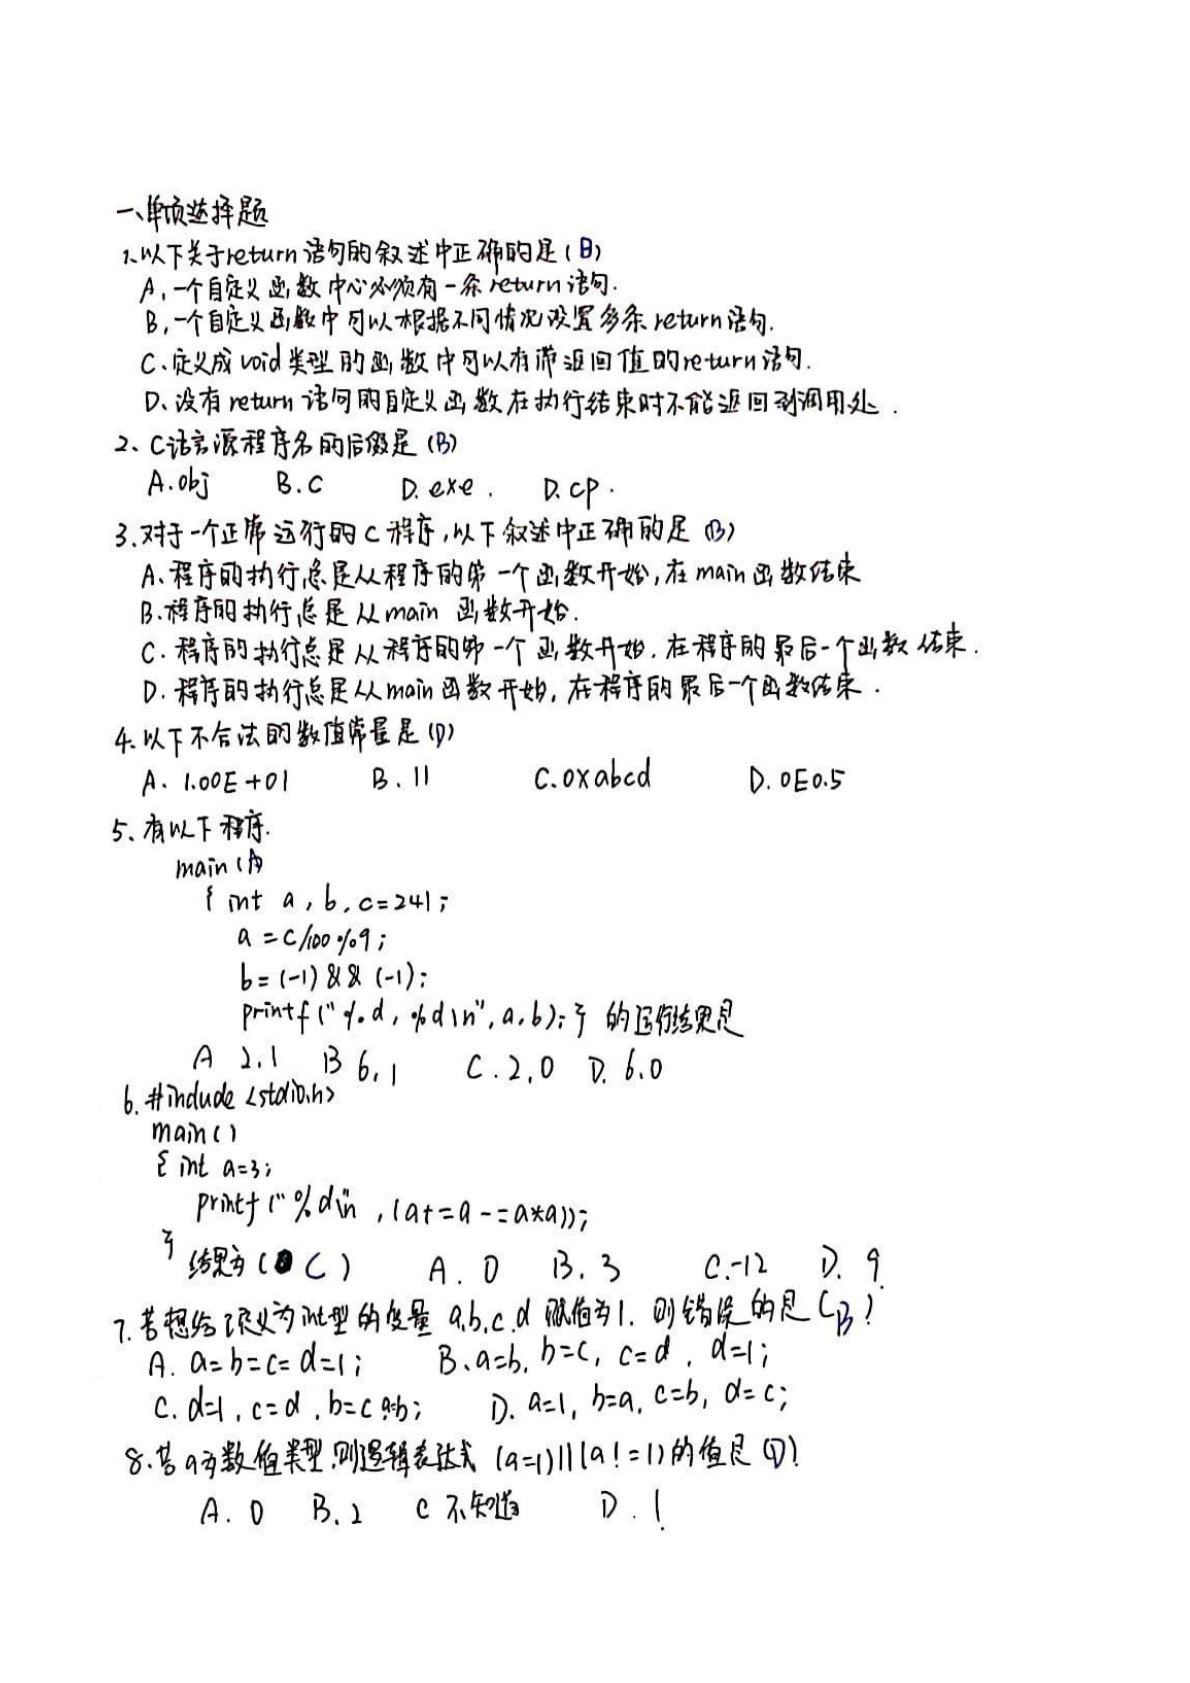 一、单项选择题
1、以下关于return语句的叙述中正确的是(B)
A、一个自定义函数中心必须有一条return语句.
B、一个自定义函数中可以根据不同情况设置多条return语句.
C、定义成void类型的函数中可以有带返回值的return语句.
D、没有return语句的自定义函数在执行结束时不能返回到调用处.
2、C语言源程序名的后缀是(B)
A.obj B.C D.exe. D.cp.
3.对于一个正常运行的C程序,以下叙述中正确的是(B)
A、程序的执行总是从程序的第一个函数开始,在main函数结束
B.程序的执行总是从main函数开始.
C.程序的执行总是从程序的第一个函数开始.在程序的最后一个函数结束.
D.程序的执行总是从main函数开始,在程序的最后一个函数结束.
4.以下不合法的数值常量是(D)
A. 1.00E+01 B. 11 C.0xabcd D. 0E0.5
5、有以下程序.
main(A)
{ int a, b, c=241;
a =c/100%9;
b= (-1) && (-1);
printf("%d, %d\n", a,b);} 的运行结果是
A 2,1 B 6,1 C.2,0 D. 6.0
6. #include <stdio.h>
main()
{ int a=3;
printf("%d\n", (a+=a-=a*a));
} 结果为( C ) A. 0 B. 3 C.-12 D. 9
7.若想给定义为int型的变量a,b,c,d赋值为1.则错误的是(B)
A. a=b=c=d=1; B、a=b, b=c, c=d, d=1;
C. d=1,c=d,b=c a=b; D. a=1, b=a, c=b, d=c;
8.若a为数值类型,则逻辑表达式(a=1)||(a!=1)的值是(D)
A. 0 B. 2 C 不知道 D. 1